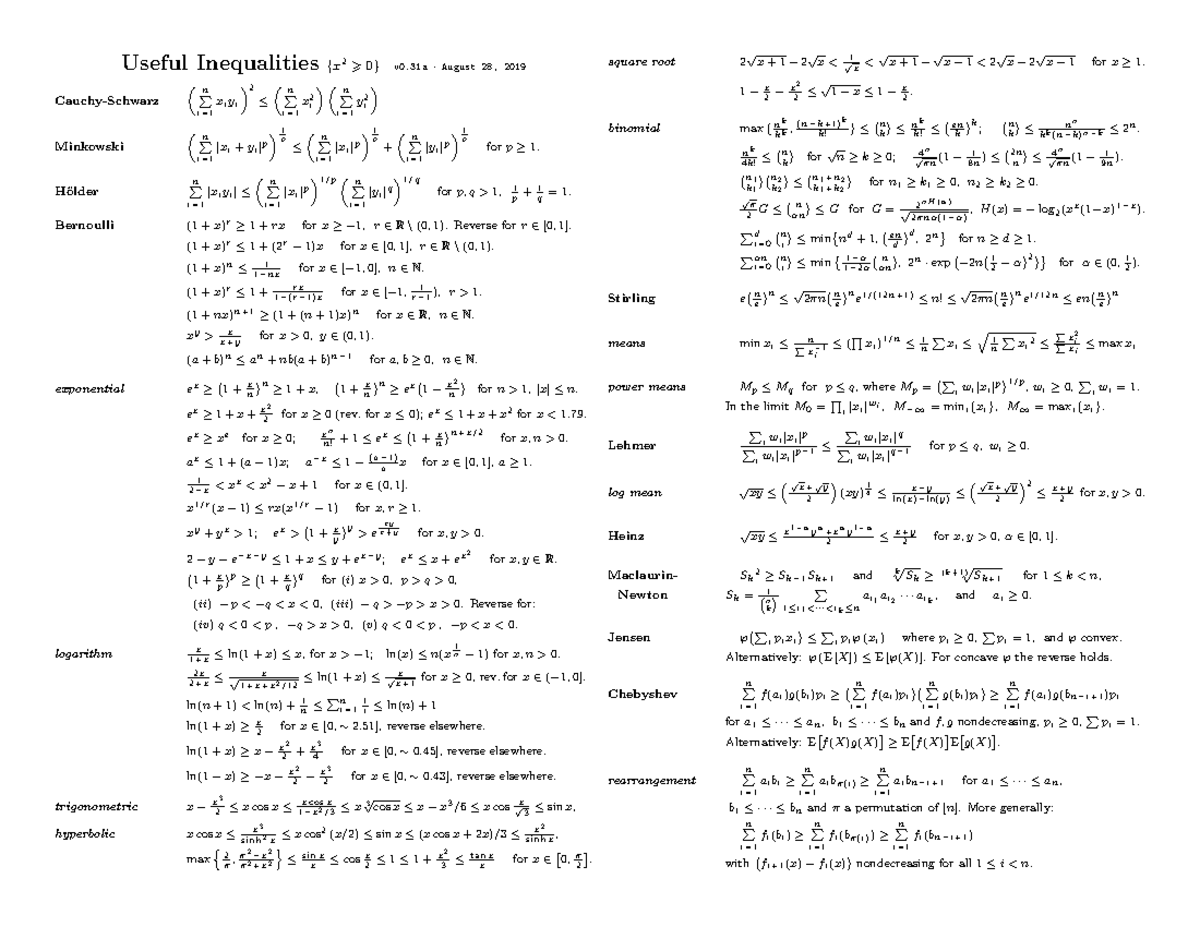 Useful Inequalities {x² ⩾ 0} v0.31a · August 28, 2019
Cauchy-Schwarz (∑_{i=1}^n x_i y_i)² ≤ (∑_{i=1}^n x_i²) (∑_{i=1}^n y_i²)
Minkowski (∑_{i=1}^n |x_i + y_i|^p)^{1/p} ≤ (∑_{i=1}^n |x_i|^p)^{1/p} + (∑_{i=1}^n |y_i|^p)^{1/p} for p ≥ 1.
Hölder ∑_{i=1}^n |x_i y_i| ≤ (∑_{i=1}^n |x_i|^p)^{1/p} (∑_{i=1}^n |y_i|^q)^{1/q} for p, q > 1, 1/p + 1/q = 1.
Bernoulli (1 + x)^r ≥ 1 + rx for x ≥ −1, r ∈ ℝ \ (0, 1). Reverse for r ∈ [0, 1].
(1 + x)^r ≤ 1 + (2^r − 1)x for x ∈ [0, 1], r ∈ ℝ \ (0, 1).
(1 + x)^n ≤ 1/(1−nx) for x ∈ [−1, 0], n ∈ ℕ.
(1 + x)^r ≤ 1 + rx/(1−(r−1)x) for x ∈ [−1, 1/(r−1)), r > 1.
(1 + nx)^{n+1} ≥ (1 + (n + 1)x)^n for x ∈ ℝ, n ∈ ℕ.
x^y > x/(x+y) for x > 0, y ∈ (0, 1).
(a + b)^n ≤ a^n + nb(a + b)^{n−1} for a, b ≥ 0, n ∈ ℕ.
exponential e^x ≥ (1 + x/n)^n ≥ 1 + x, (1 + x/n)^n ≥ e^x(1 − x²/n) for n > 1, |x| ≤ n.
e^x ≥ 1 + x + x²/2 for x ≥ 0 (rev. for x ≤ 0); e^x ≤ 1 + x + x² for x < 1.79.
e^x ≥ x^e for x ≥ 0; x^n/n! + 1 ≤ e^x ≤ (1 + x/n)^{n+x/2} for x, n > 0.
a^x ≤ 1 + (a − 1)x; a^{−x} ≤ 1 − (a−1)/a x for x ∈ [0, 1], a ≥ 1.
1/(2−x) < x^x < x² − x + 1 for x ∈ (0, 1].
x^{1/r}(x − 1) ≤ rx(x^{1/r} − 1) for x, r ≥ 1.
x^y + y^x > 1; e^x > (1 + x/y)^y > e^{xy/(x+y)} for x, y > 0.
2 − y − e^{−x−y} ≤ 1 + x ≤ y + e^{x−y}; e^x ≤ x + e^{x²} for x, y ∈ ℝ.
(1 + x/p)^p ≥ (1 + x/q)^q for (i) x > 0, p > q > 0,
(ii) −p < −q < x < 0, (iii) −q > −p > x > 0. Reverse for:
(iv) q < 0 < p, −q > x > 0, (v) q < 0 < p, −p < x < 0.
logarithm x/(1+x) ≤ ln(1 + x) ≤ x, for x > −1; ln(x) ≤ n(x^{1/n} − 1) for x, n > 0.
2x/(2+x) ≤ x/√(1+x+x²/12) ≤ ln(1 + x) ≤ x/√(x+1) for x ≥ 0, rev. for x ∈ (−1, 0].
ln(n + 1) < ln(n) + 1/n ≤ ∑_{i=1}^n 1/i ≤ ln(n) + 1
ln(1 + x) ≥ x/2 for x ∈ [0, ∼ 2.51], reverse elsewhere.
ln(1 + x) ≥ x − x²/2 + x³/4 for x ∈ [0, ∼ 0.45], reverse elsewhere.
ln(1 − x) ≥ −x − x²/2 − x³/2 for x ∈ [0, ∼ 0.43], reverse elsewhere.
trigonometric x − x³/2 ≤ x cos x ≤ x cos x/(1−x²/3) ≤ x ∛(cos x) ≤ x − x³/6 ≤ x cos x/√3 ≤ sin x,
hyperbolic x cos x ≤ x³/sinh² x ≤ x cos²(x/2) ≤ sin x ≤ (x cos x + 2x)/3 ≤ x²/sinh x,
max{2/π, (π²−x²)/(π²+x²)} ≤ sin x/x ≤ cos x/2 ≤ 1 ≤ 1 + x²/3 ≤ tan x/x for x ∈ [0, π/2].
square root 2√(x + 1) − 2√x < 1/√x < √(x + 1) − √(x − 1) < 2√x − 2√(x − 1) for x ≥ 1.
1 − x/2 − x²/2 ≤ √(1 − x) ≤ 1 − x/2.
binomial max{n^k/k^k, (n−k+1)^k/k!} ≤ (n k) ≤ n^k/k! ≤ (en/k)^k; (n k) ≤ n^n/(k^k(n−k)^{n−k}) ≤ 2^n.
n^k/4k! ≤ (n k) for √n ≥ k ≥ 0; 4^n/√(πn) (1 − 1/8n) ≤ (2n n) ≤ 4^n/√(πn) (1 − 1/9n).
(n₁ k₁)(n₂ k₂) ≤ (n₁+n₂ k₁+k₂) for n₁ ≥ k₁ ≥ 0, n₂ ≥ k₂ ≥ 0.
√π/2 G ≤ (n αn) ≤ G for G = 2^{nH(α)}/√(2πnα(1−α)), H(x) = − log₂(x^x(1−x)^{1−x}).
∑_{i=0}^d (n i) ≤ min{n^d + 1, (en/d)^d, 2^n} for n ≥ d ≥ 1.
∑_{i=0}^{αn} (n i) ≤ min{(1−α)/(1−2α) (n αn), 2^n · exp(−2n(1/2 − α)²)} for α ∈ (0, 1/2).
Stirling e(n/e)^n ≤ √(2πn)(n/e)^n e^{1/(12n+1)} ≤ n! ≤ √(2πn)(n/e)^n e^{1/12n} ≤ en(n/e)^n
means min x_i ≤ n/∑x_i^{−1} ≤ (∏ x_i)^{1/n} ≤ 1/n ∑ x_i ≤ √(1/n ∑ x_i²) ≤ ∑x_i²/∑x_i ≤ max x_i
power means M_p ≤ M_q for p ≤ q, where M_p = (∑_i w_i|x_i|^p)^{1/p}, w_i ≥ 0, ∑_i w_i = 1.
In the limit M₀ = ∏_i |x_i|^{w_i}, M_{−∞} = min_i{x_i}, M_∞ = max_i{x_i}.
Lehmer ∑_i w_i|x_i|^p / ∑_i w_i|x_i|^{p−1} ≤ ∑_i w_i|x_i|^q / ∑_i w_i|x_i|^{q−1} for p ≤ q, w_i ≥ 0.
log mean √(xy) ≤ ((√x+√y)/2)(xy)^{1/4} ≤ (x−y)/(ln(x)−ln(y)) ≤ ((√x+√y)/2)² ≤ (x+y)/2 for x, y > 0.
Heinz √(xy) ≤ (x^{1−α}y^α+x^αy^{1−α})/2 ≤ (x+y)/2 for x, y > 0, α ∈ [0, 1].
Maclaurin- S_k² ≥ S_{k−1}S_{k+1} and ᵏ√S_k ≥ ⁽ᵏ⁺¹⁾√S_{k+1} for 1 ≤ k < n,
Newton S_k = 1/(n k) ∑_{1≤i₁<···<i_k≤n} a_{i₁}a_{i₂} ··· a_{i_k}, and a_i ≥ 0.
Jensen φ(∑_i p_i x_i) ≤ ∑_i p_i φ(x_i) where p_i ≥ 0, ∑ p_i = 1, and φ convex.
Alternatively: φ(E[X]) ≤ E[φ(X)]. For concave φ the reverse holds.
Chebyshev ∑_{i=1}^n f(a_i)g(b_i)p_i ≥ (∑_{i=1}^n f(a_i)p_i)(∑_{i=1}^n g(b_i)p_i) ≥ ∑_{i=1}^n f(a_i)g(b_{n−i+1})p_i
for a₁ ≤ ··· ≤ a_n, b₁ ≤ ··· ≤ b_n and f, g nondecreasing, p_i ≥ 0, ∑ p_i = 1.
Alternatively: E[f(X)g(X)] ≥ E[f(X)]E[g(X)].
rearrangement ∑_{i=1}^n a_i b_i ≥ ∑_{i=1}^n a_i b_{π(i)} ≥ ∑_{i=1}^n a_i b_{n−i+1} for a₁ ≤ ··· ≤ a_n,
b₁ ≤ ··· ≤ b_n and π a permutation of [n]. More generally:
∑_{i=1}^n f_i(b_i) ≥ ∑_{i=1}^n f_i(b_{π(i)}) ≥ ∑_{i=1}^n f_i(b_{n−i+1})
with (f_{i+1}(x) − f_i(x)) nondecreasing for all 1 ≤ i < n.